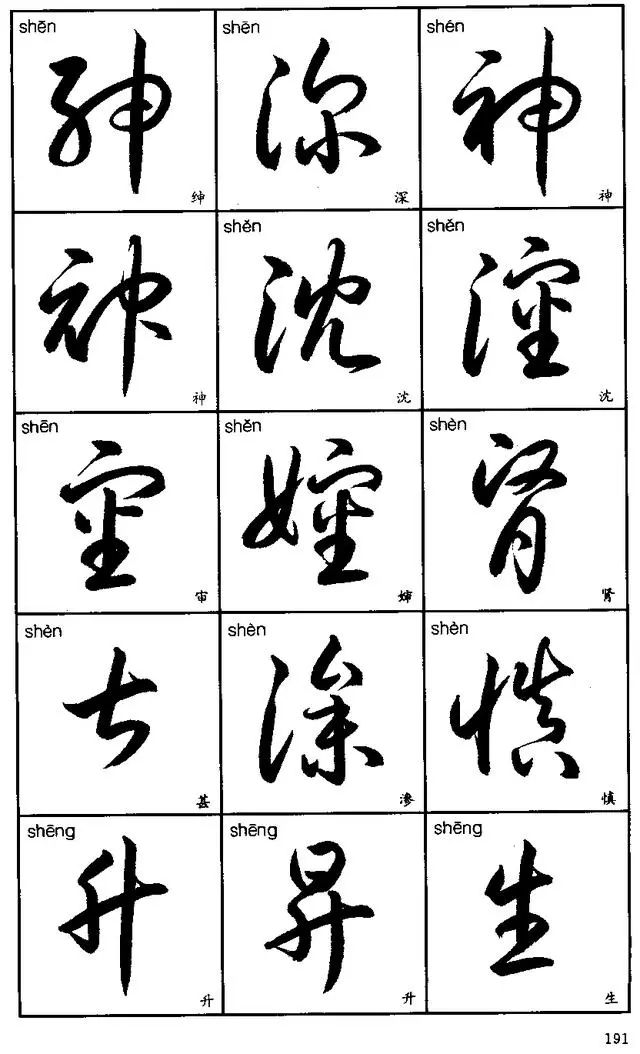 shēn shēn shén
紳 深 神
绅 深 神
shěn shěn
神 沈 瀋
神 沈 沈
shēn shěn shèn
審 嬸 腎
审 婶 肾
shèn shèn shèn
甚 滲 慎
甚 渗 慎
shēng shēng shēng
升 昇 生
升 升 生
191